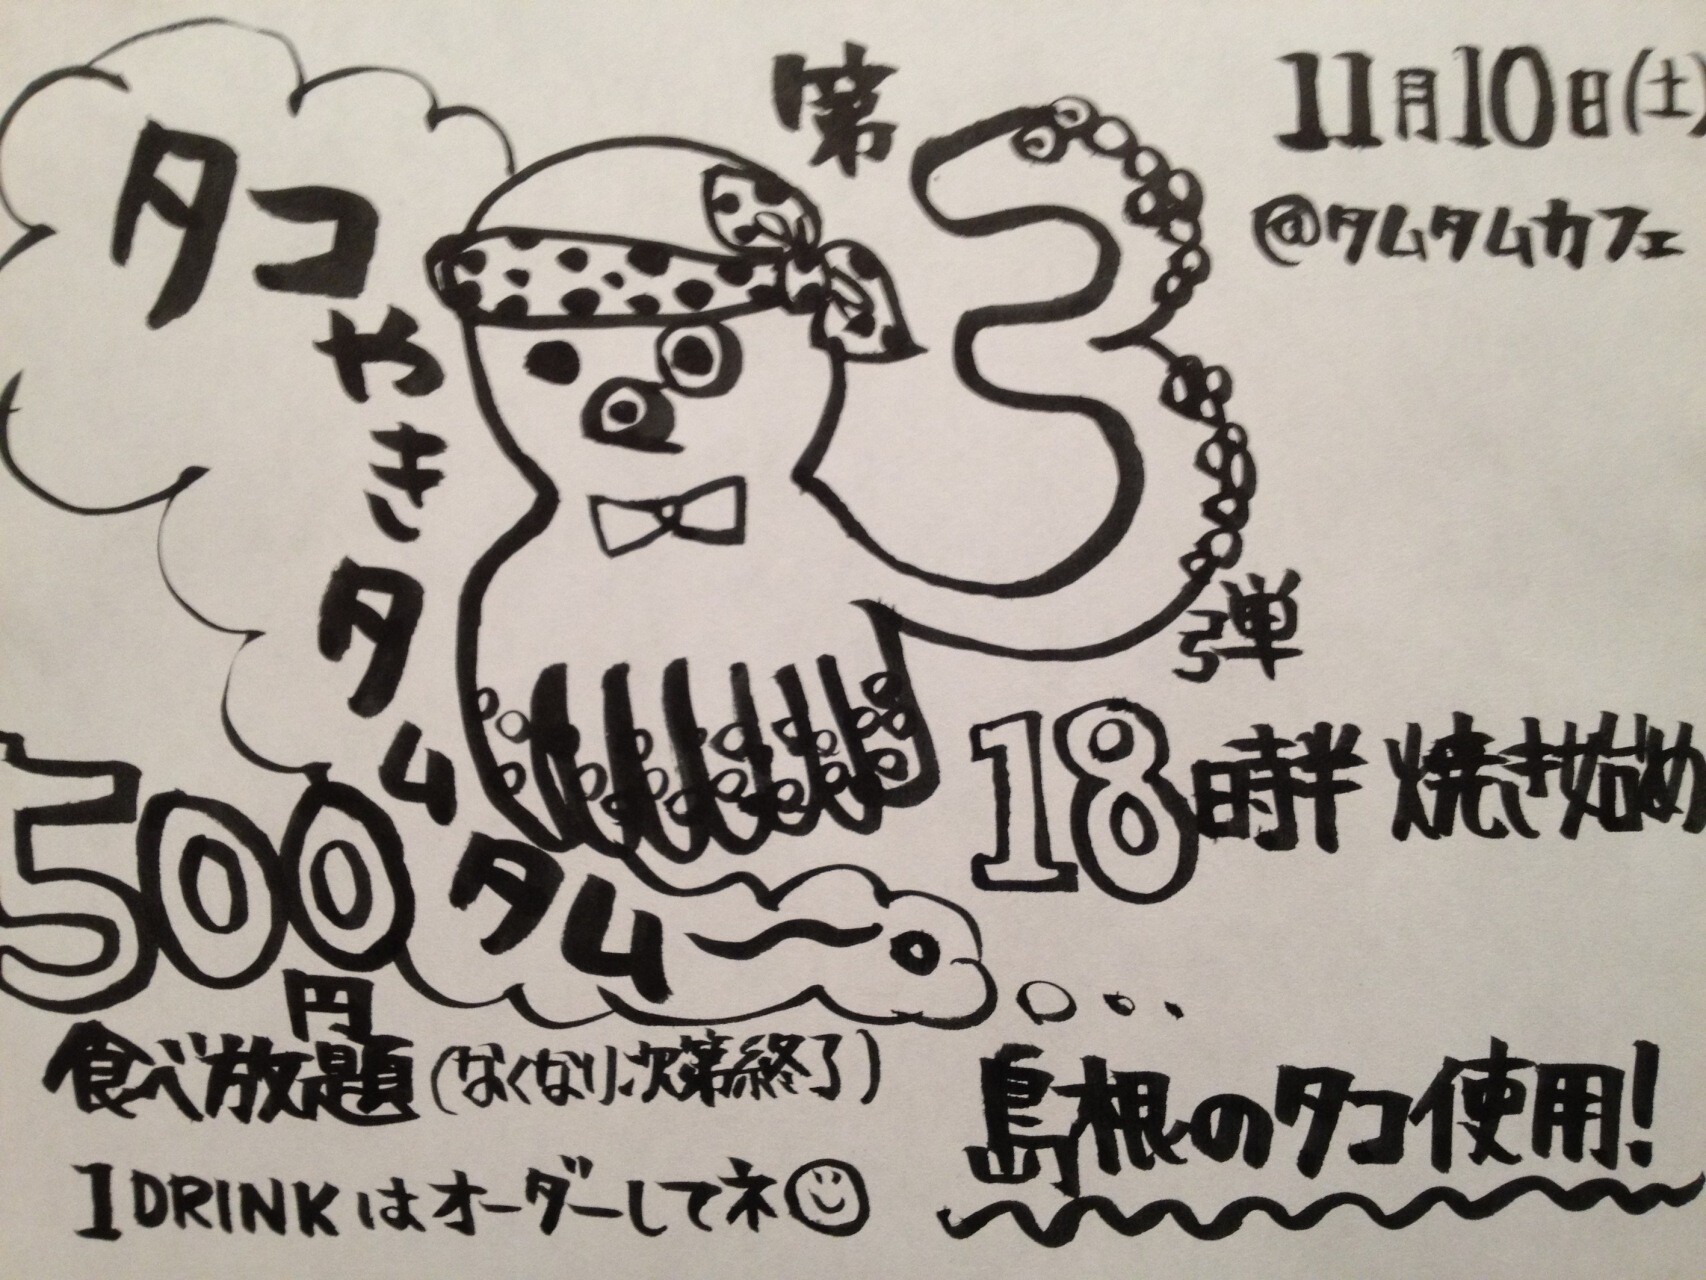 第3弾
11月10日(土)
@タムタムカフェ
タコやきタムタム〜。
18時半 焼き始め
500円
食べ放題(なくなり次第終了)
1DRINKはオーダーしてネ
島根のタコ使用!